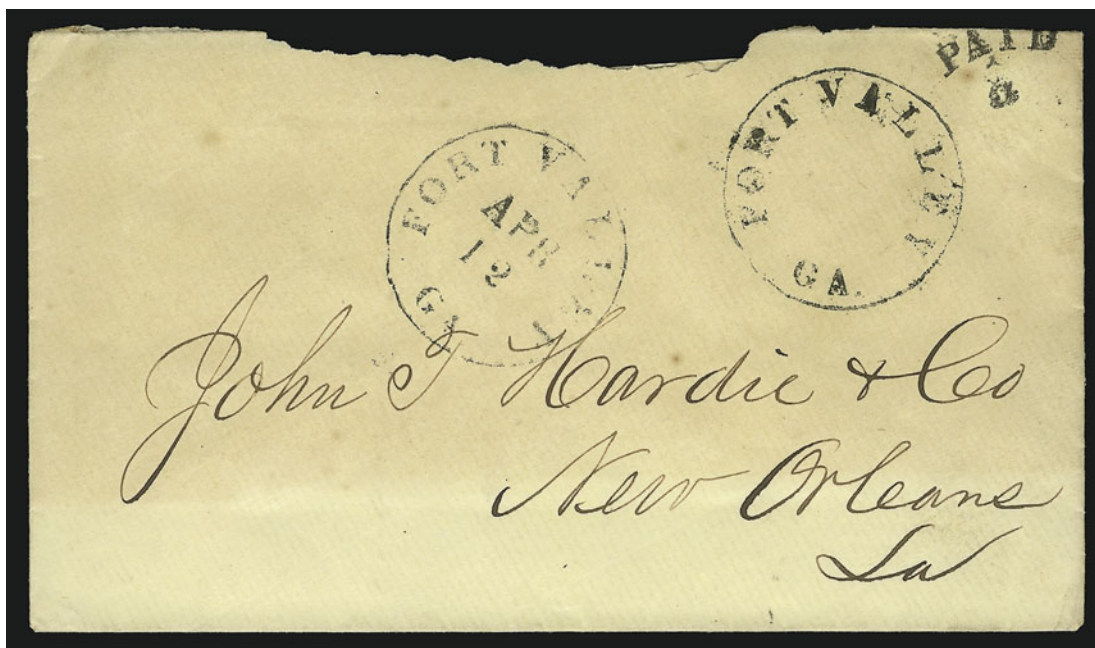 PAID
FORT VALLEY
GA.
FORT VALLEY
APR
12
GA
John T Hardie & Co
New Orleans
La